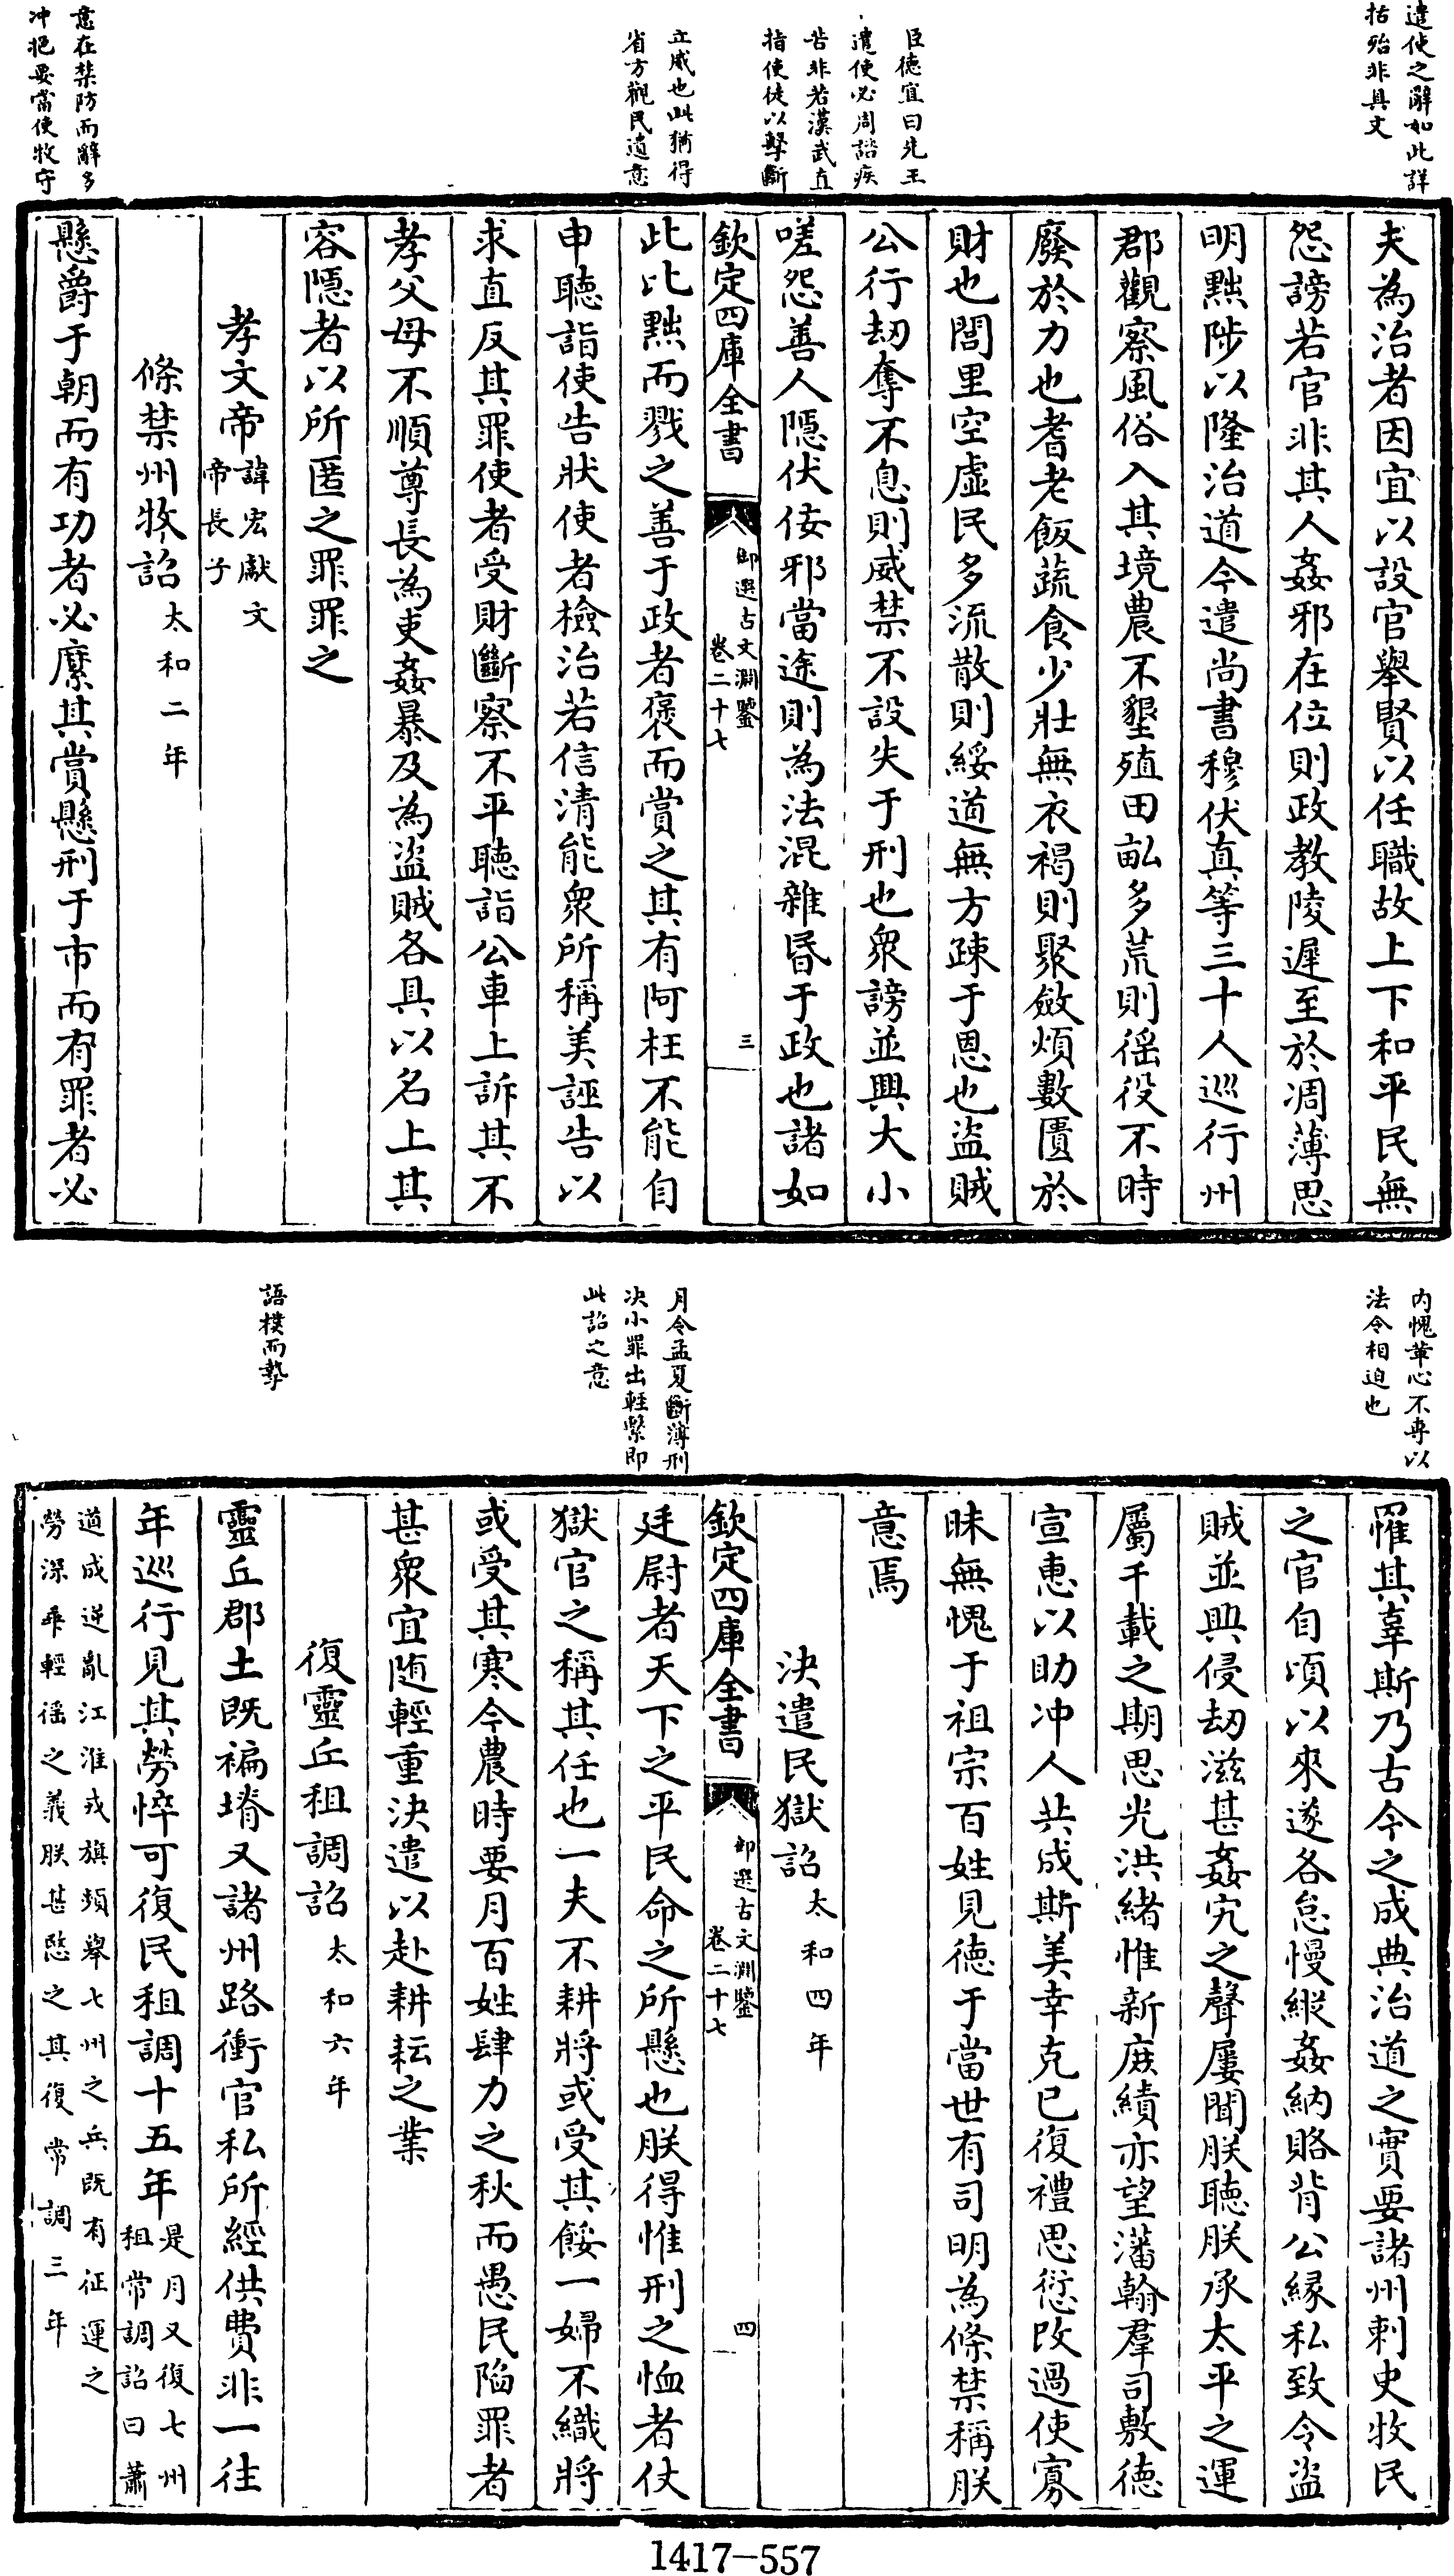 遣使之辭如此詳
括殆非具文
臣德宜曰先王
遣使必周諮疾
苦非若漢武直
指使徒以擊斷
立威也此猶得
省方觀民遺意
意在禁防而辭多
冲挹要當使牧守
夫為治者因宜以設官舉賢以任職故上下和平民無
怨謗若官非其人姦邪在位則政教陵遲至於凋薄思
明黜陟以隆治道今遣尚書穆伏真等三十人巡行州
郡觀察風俗入其境農不墾殖田畝多荒則徭役不時
廢於力也耆老飯蔬食少壯無衣褐則聚斂煩數匱於
財也閭里空虛民多流散則綏道無方疎于恩也盜賊
公行劫奪不息則威禁不設失于刑也衆謗並興大小
嗟怨善人隱伏佞邪當途則為法混雜昏于政也諸如
欽定四庫全書
御選古文淵鑒
卷二十七
三
此比黜而戮之善于政者褒而賞之其有阿枉不能自
申聽詣使告狀使者檢治若信清能衆所稱美誣告以
求直反其罪使者受財斷察不平聽詣公車上訴其不
孝父母不順尊長為吏姦暴及為盜賊各具以名上其
容隱者以所匿之罪罪之
孝文帝諱宏獻文帝長子
條禁州牧詔太和二年
懸爵于朝而有功者必縻其賞懸刑于市而有罪者必
内愧革心不專以
法令相迫也
月令孟夏斷薄刑
決小罪出輕繫即
此詔之意
語樸而摯
罹其辜斯乃古今之成典治道之實要諸州刺史牧民
之官自頃以來遂各怠慢縱姦納賂背公緣私致令盜
賊並興侵劫滋甚姦宄之聲屢聞朕聽朕承太平之運
屬千載之期思光洪緒惟新庶績亦望藩翰羣司敷德
宣惠以助冲人共成斯美幸克已復禮思愆改過使寡
昧無愧于祖宗百姓見德于當世有司明為條禁稱朕
意焉
決遣民獄詔太和四年
欽定四庫全書
御選古文淵鑒
卷二十七
四
廷尉者天下之平民命之所懸也朕得惟刑之恤者仗
獄官之稱其任也一夫不耕將或受其餒一婦不織將
或受其寒今農時要月百姓肆力之秋而愚民陷罪者
甚衆宜随輕重決遣以赴耕耘之業
復靈丘租調詔太和六年
靈丘郡土既褊堉又諸州路衝官私所經供費非一往
年巡行見其勞悴可復民租調十五年是月又復七州租常調詔曰蕭
道成逆亂江淮戎旗頻舉七州之兵既有征運之
勞深乖輕徭之義朕甚愍之其復常調三年
1417-557